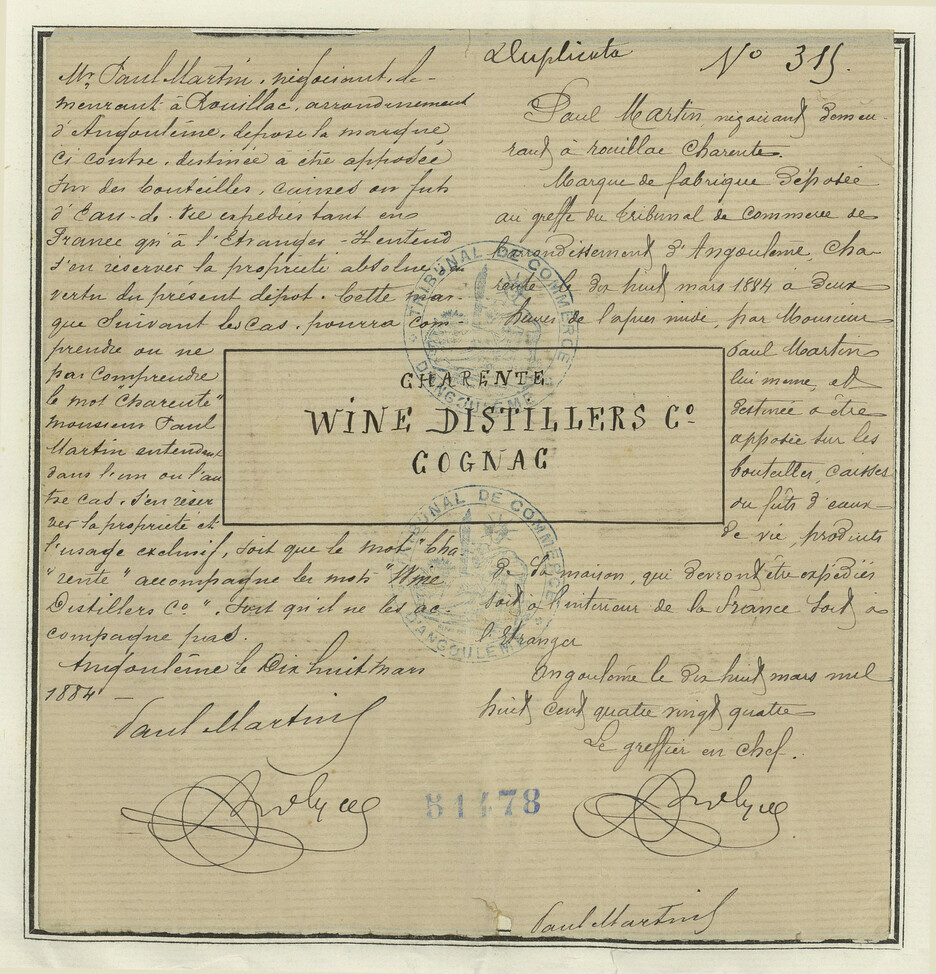 Duplicata
No 315.
Mr. Paul Martin, négociant, de-
meurant à Rouillac, arrondissement
d'Angoulême, dépose la marque
ci contre, destinée à être apposée
sur des bouteilles, caisses ou futs
d'Eau-de-Vie expédiés tant en
France qu'à l'Etranger - Il entend
s'en réserver la propriété absolue, en
vertu du présent dépot. Cette mar-
que suivant les cas, pourra com-
prendre ou ne
pas comprendre
le mot Charente"
monsieur Paul
Martin entendant
dans l'un ou l'au
tre cas, s'en réser
ver la propriété et
l'usage exclusif, soit que le mot "Cha
"rente" accompagne les mots "Wine
Distillers Co", soit qu'il ne les ac-
compagne pas.
Angoulême le Dix huit mars
1884 -
Paul Martin
Paul Martin négociant demeu-
rant à rouillac Charente.
Marque de fabrique déposée
au greffe du tribunal de commerce de
l'arrondissement d'Angoulême, Cha-
rente le dix huit mars 1884 à deux
heures de l'après midi, par Monsieur
Paul Martin
lui même, et
destinée à être
apposée sur les
bouteilles, caisses
ou fûts d'eaux-
de vie, produits
de sa maison, qui devront être expédiés
soit à l'intérieur de la France soit à
l'Etranger
Angoulême le dix huit mars mil
huit cent quatre vingt quatre
Le greffier en chef.
CHARENTE
WINE DISTILLERS Co
COGNAC
TRIBUNAL DE COMMERCE
D'ANGOULÊME
TRIBUNAL DE COMMERCE
D'ANGOULÊME
Paul Martin